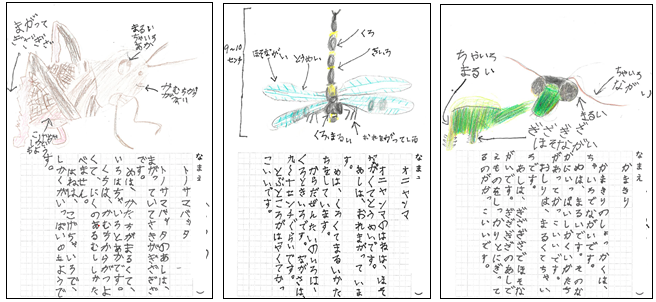 まがって
ぎざぎざ
まるい
ちゃいろ
あか
かむちからが
つよい
なまえ
トノサマバッタ
トノサマバッタのあしは、
まがっていてぎざぎざぎざ
です。
めは、かたちがまるくて、
いろはちゃいろとあかです。
くちは、かむちからがつよ
くて、にくのあるむししかた
べません。
はねは、こげちゃいろで、
しかくがいっぱいのもようで
す。
9~10
センチ
くろ
きいろ
ほそながい
とうめい
くろ、まるい
おれまがっている
なまえ
オニヤンマ
オニヤンマのはねは、ほそ
ながくとうめいです。
あしは、おれまがっていま
す。
めは、くろくてまるいかた
ちをしています。
からだぜんたいのいろは、
くろときいろです。ながさは、
九~十センチぐらいです。
とぶところがはやくてかっ
こいいです。
ちゃいろ
まるい
ちゃいろ
ながい
まるい
ぎざぎざ
ほそながい
なまえ
かまきり
かまきりのしょっかくは、
ちゃいろでながいです。
めは、まるいです。そのな
かにいっぱいしかくいかたち
があってかっこいいです。
おしりは、まるくてちゃい
ろです。
あしは、ぎざぎざでほそな
がいです。ぎざぎざのあしで
えものをしっかりとにぎって
るのがかっこいいです。